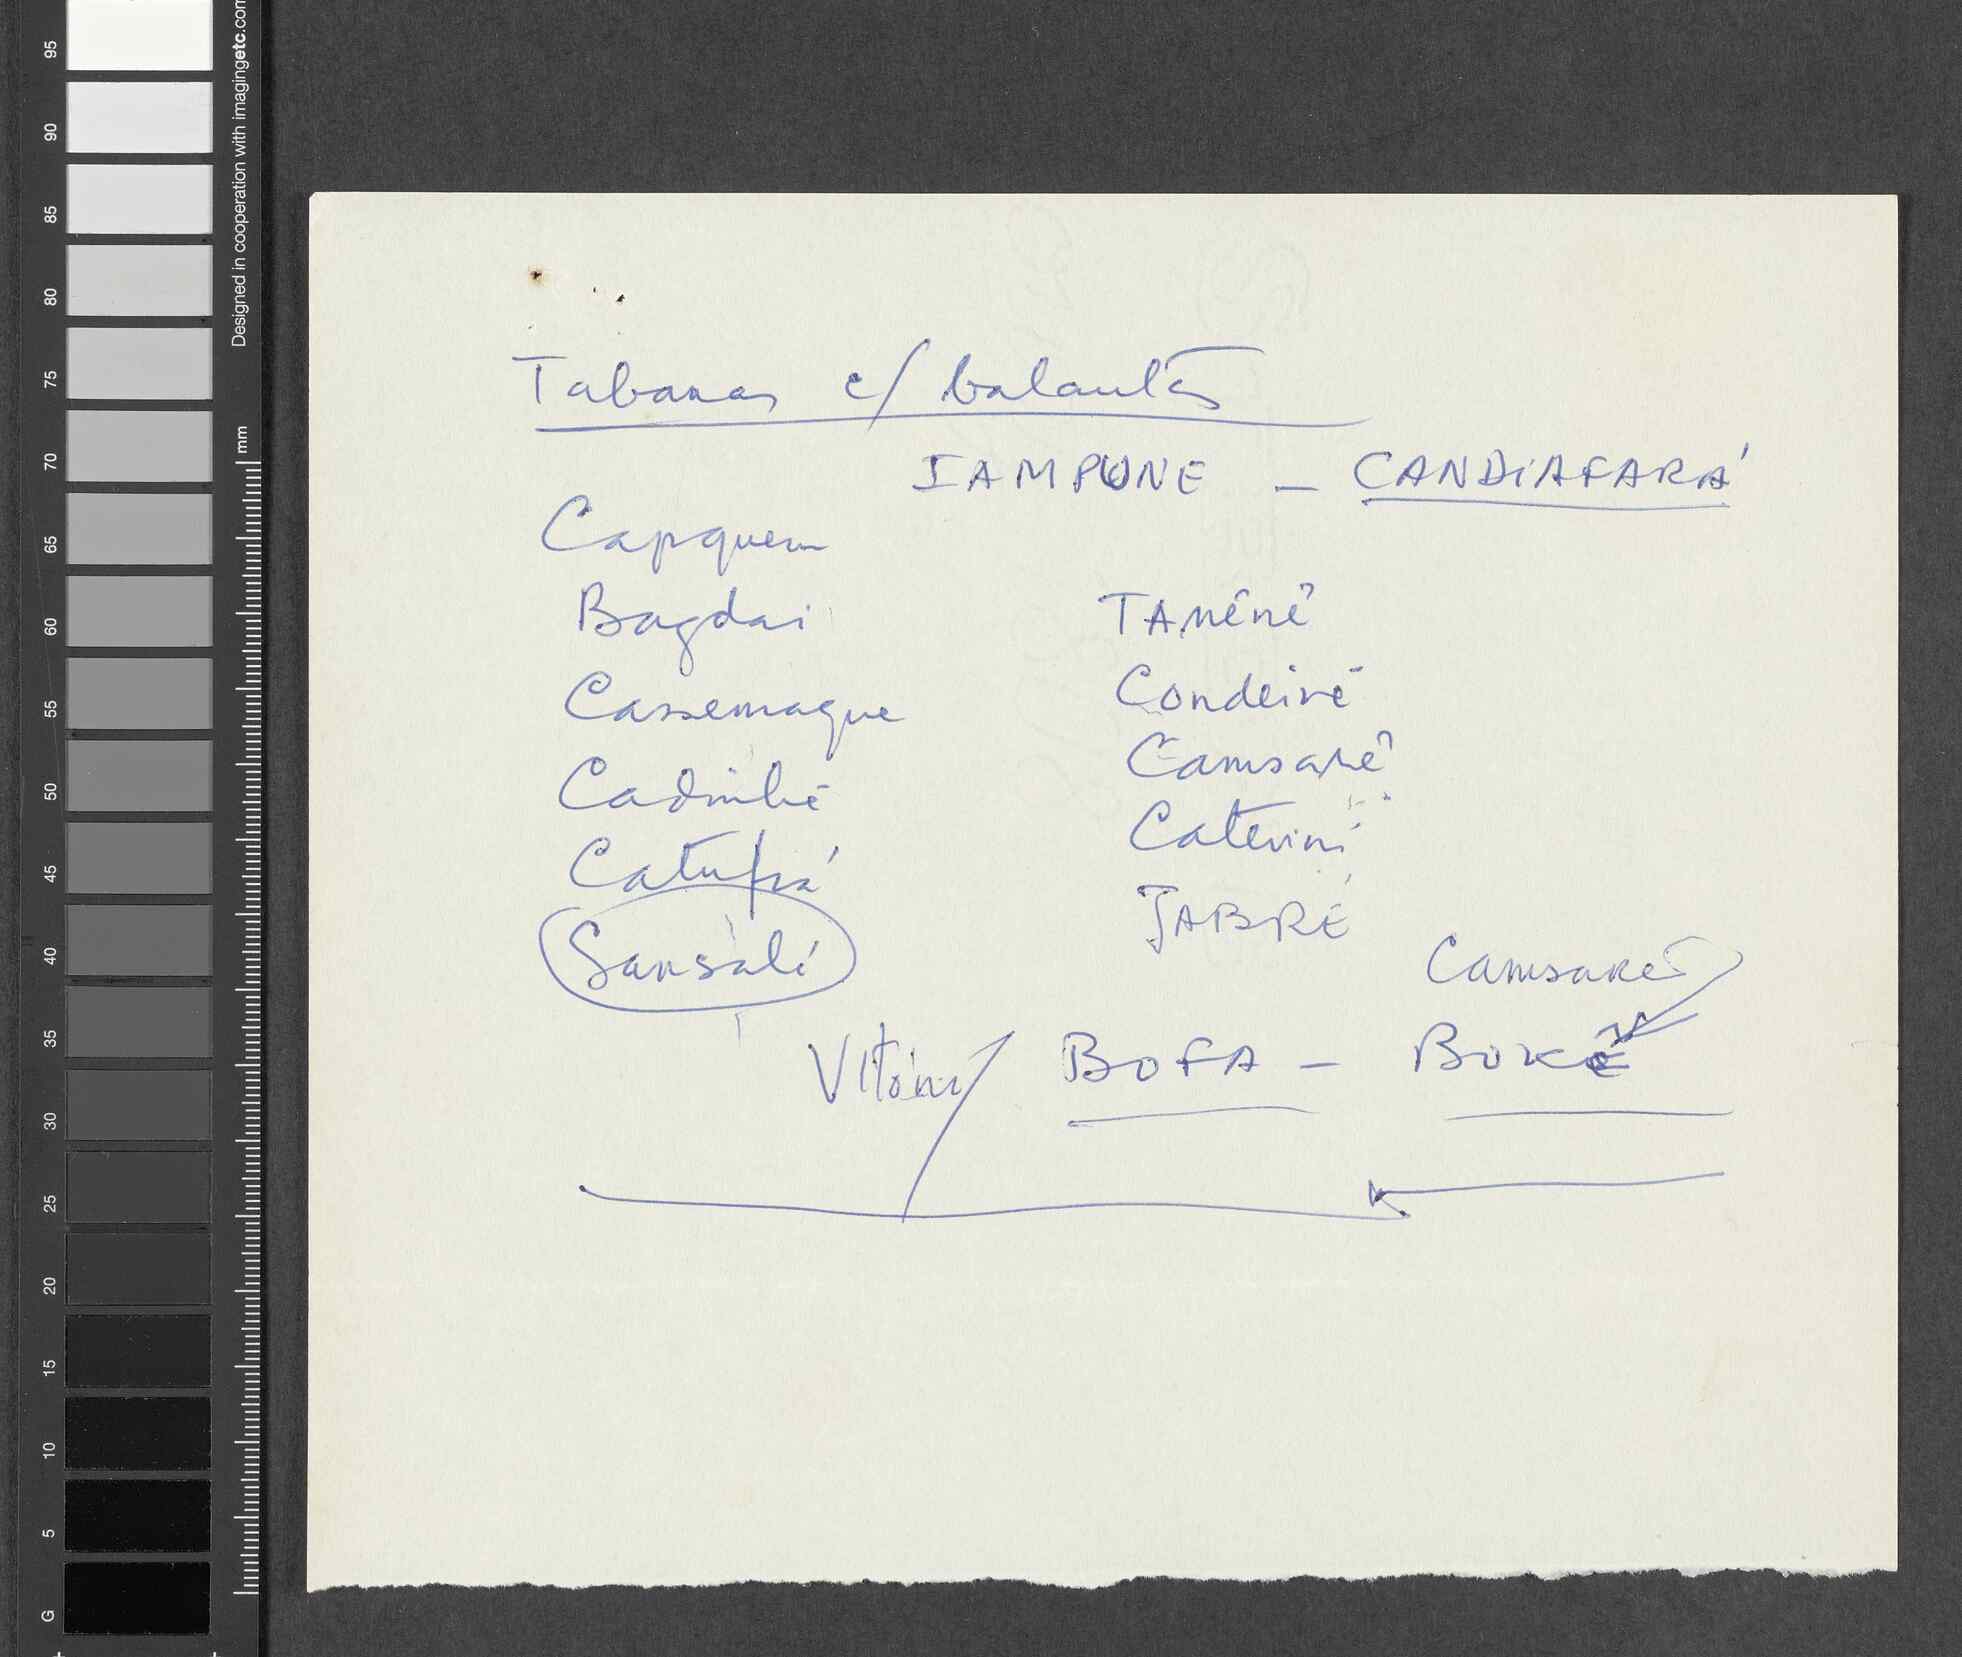 Tabancas c/ balantas
IAMPUNE - CANDIAFARÁ
Capquem
Bagdai
Cassemaque
Catufá
Sansalé
TANÊNÊ
Condeiré
Camsarê
Caterini
JABRÉ
Camsarê
BOFA - BOKÉ
95
90
85
80
75
70
65
60
55
50
45
40
35
30
25
20
15
10
5
G
mm
Designed in cooperation with imagingetc.com